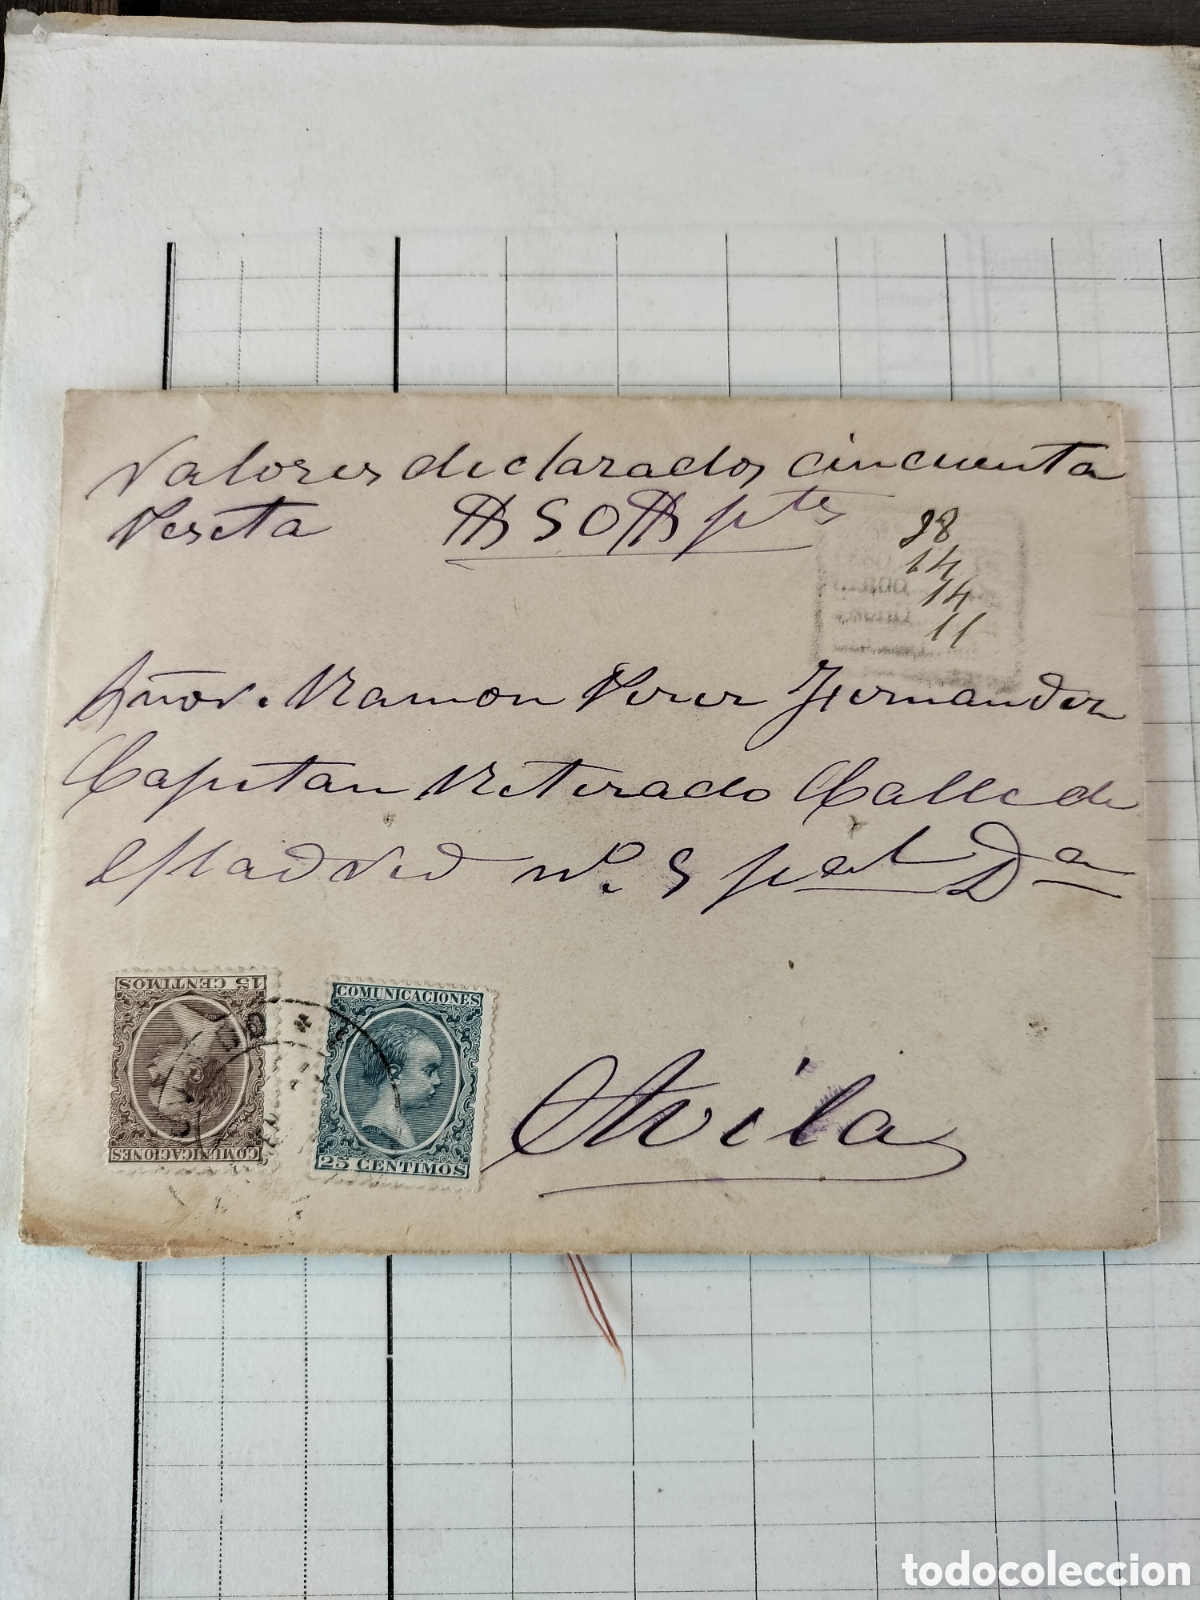 Valores declarados cincuenta
Peseta #50# ptes
28
14
14
11
Señor. Ramon Perez Hernandez
Capitan Retirado Calle de
Madrid nº. 5 pal Da
15 CENTIMOS
COMUNICACIONES
COMUNICACIONES
25 CENTIMOS
Avila
todocoleccion